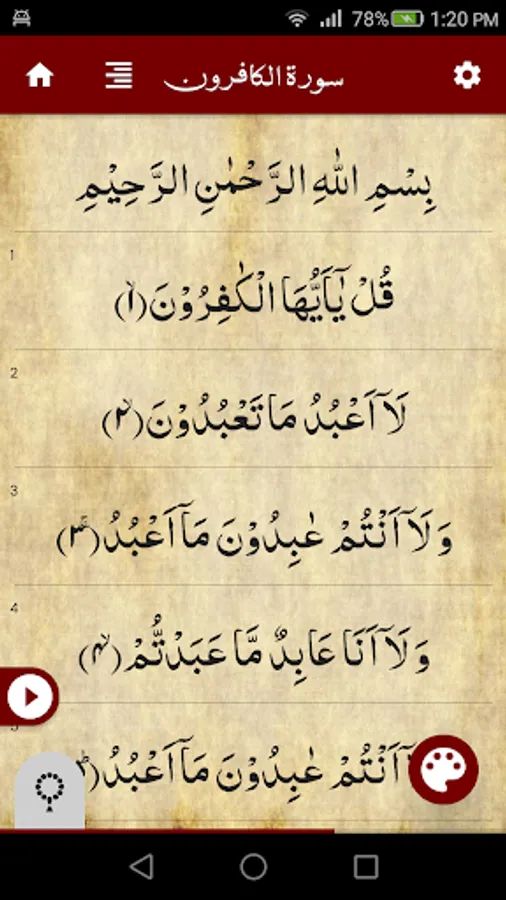 78% 1:20 PM
سورة الكافرون
بِسْمِ اللهِ الرَّحْمٰنِ الرَّحِيْمِ
1
قُلْ يٰٓاَيُّهَا الْكٰفِرُوْنَ ﴿۱﴾
2
لَآ اَعْبُدُ مَا تَعْبُدُوْنَ ﴿۲﴾
3
وَلَآ اَنْتُمْ عٰبِدُوْنَ مَآ اَعْبُدُ ﴿۳﴾
4
وَلَآ اَنَا عَابِدٌ مَّا عَبَدْتُّمْ ﴿۴﴾
اَنْتُمْ عٰبِدُوْنَ مَآ اَعْبُدُ